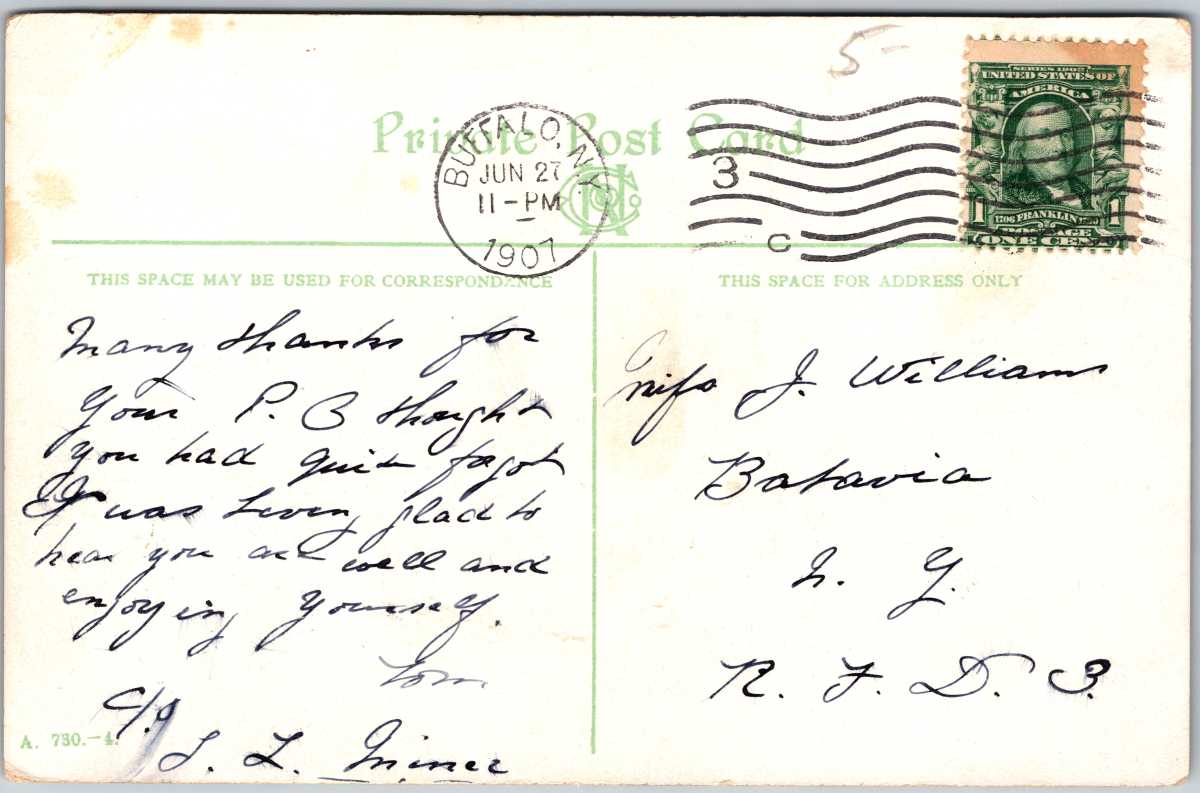 5-
Private Post Card
BUFFALO, N.Y.
JUN 27
11-PM
1907
3
C
SERIES 1902
UNITED STATES OF
AMERICA
1 1706 FRANKLIN 1790 1
POSTAGE
ONE CENT
THIS SPACE MAY BE USED FOR CORRESPONDENCE
Many thanks for
your P. C thought
you had quite fagot
I was
glad to
hear you are well and
enjoying yourself.
Tom
c/o
A. 730.-4.
S. L. Miner
THIS SPACE FOR ADDRESS ONLY
J. Williams
Batavia
N. Y.
R. F. D. 3.